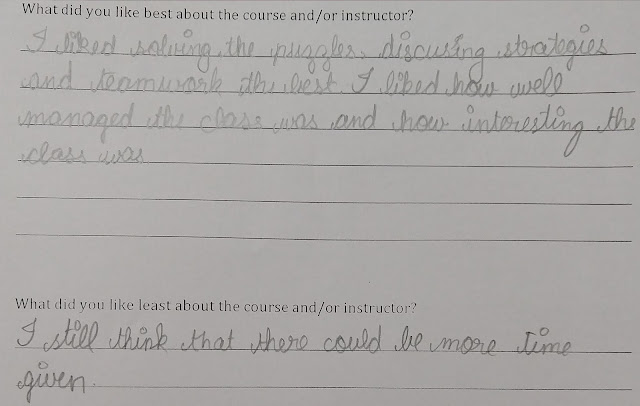 What did you like best about the course and/or instructor?
I liked solving the puzzles, discusing strategies
and teamwork the best. I liked how well
managed the class was and how interesting the
class was
What did you like least about the course and/or instructor?
I still think that there could be more time
given.